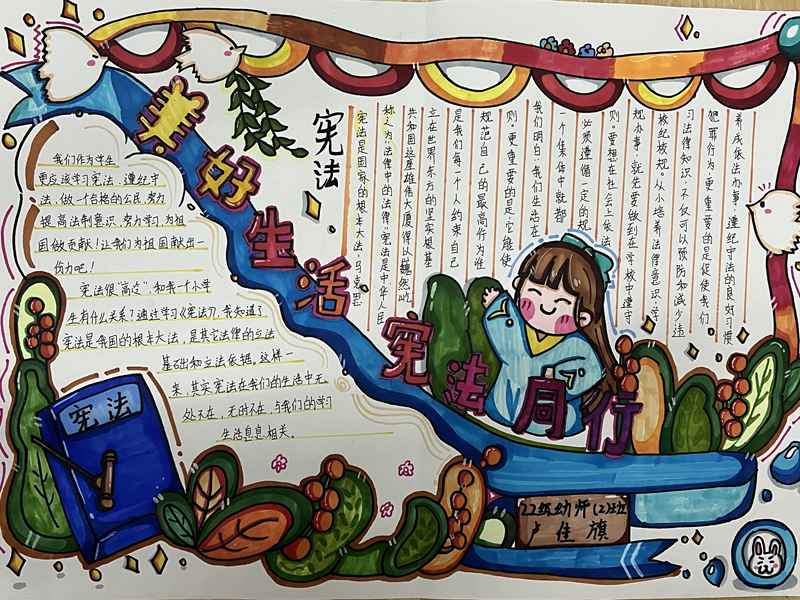 美好生活
宪法同行
我们作为学生
更应该学习宪法,遵纪守
法,做一个合格的公民,努力
提高法制意识,努力学习,为祖
国做贡献!让我们为祖国献出一
份力吧!
宪法很"高远",和我一个小学
生有什么关系?通过学习《宪法》,我知道了
宪法是我国的根本大法,是其它法律的立法
基础和立法依据。这样一
来,其实宪法在我们的生活中无
处不在,无时不在,与我们的学习
生活息息相关。
宪法
宪法
宪法是国家的根本大法,马克思
称人为"法律中的法律"宪法是中华人民
共和国这座雄伟大厦得以巍然屹
立在世界东方的坚实根基
是我们每一个人约束自己
规范自己的最高行为准
则。更重要的是,它能使
我们明白:我们生活在
一个集体中就都
必须遵循一定的规
则。要想在社会上依法
规办事,就先要做到在学校中遵守
校纪校规。从小培养法律意识,学
习法律知识,不仅可以预防和减少违
犯罪行为,更重要的是促使我们
养成依法办事,遵纪守法的良好习惯
22级幼师(2)班
卢佳旗